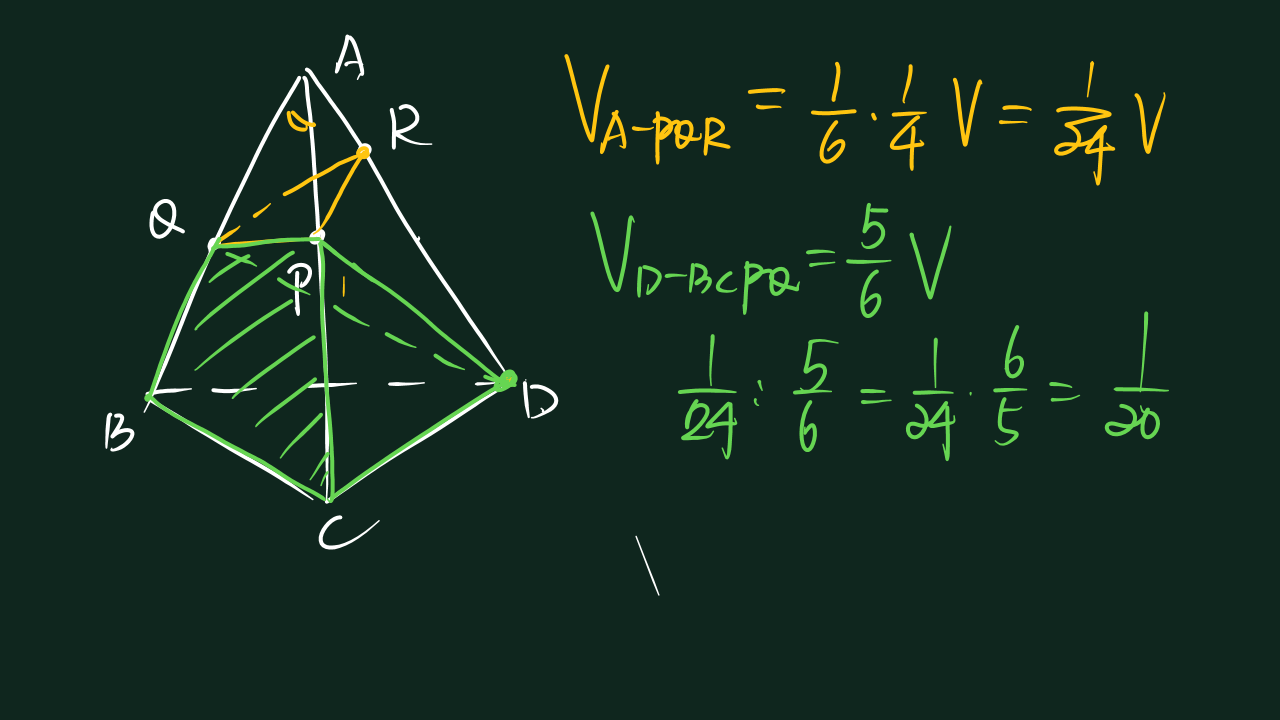 A
R
Q
P
B
D
C
V_{A-PQR} = \frac{1}{6} \cdot \frac{1}{4} V = \frac{1}{24} V
V_{D-BCPQ} = \frac{5}{6} V
\frac{1}{24} : \frac{5}{6} = \frac{1}{24} \cdot \frac{6}{5} = \frac{1}{20}